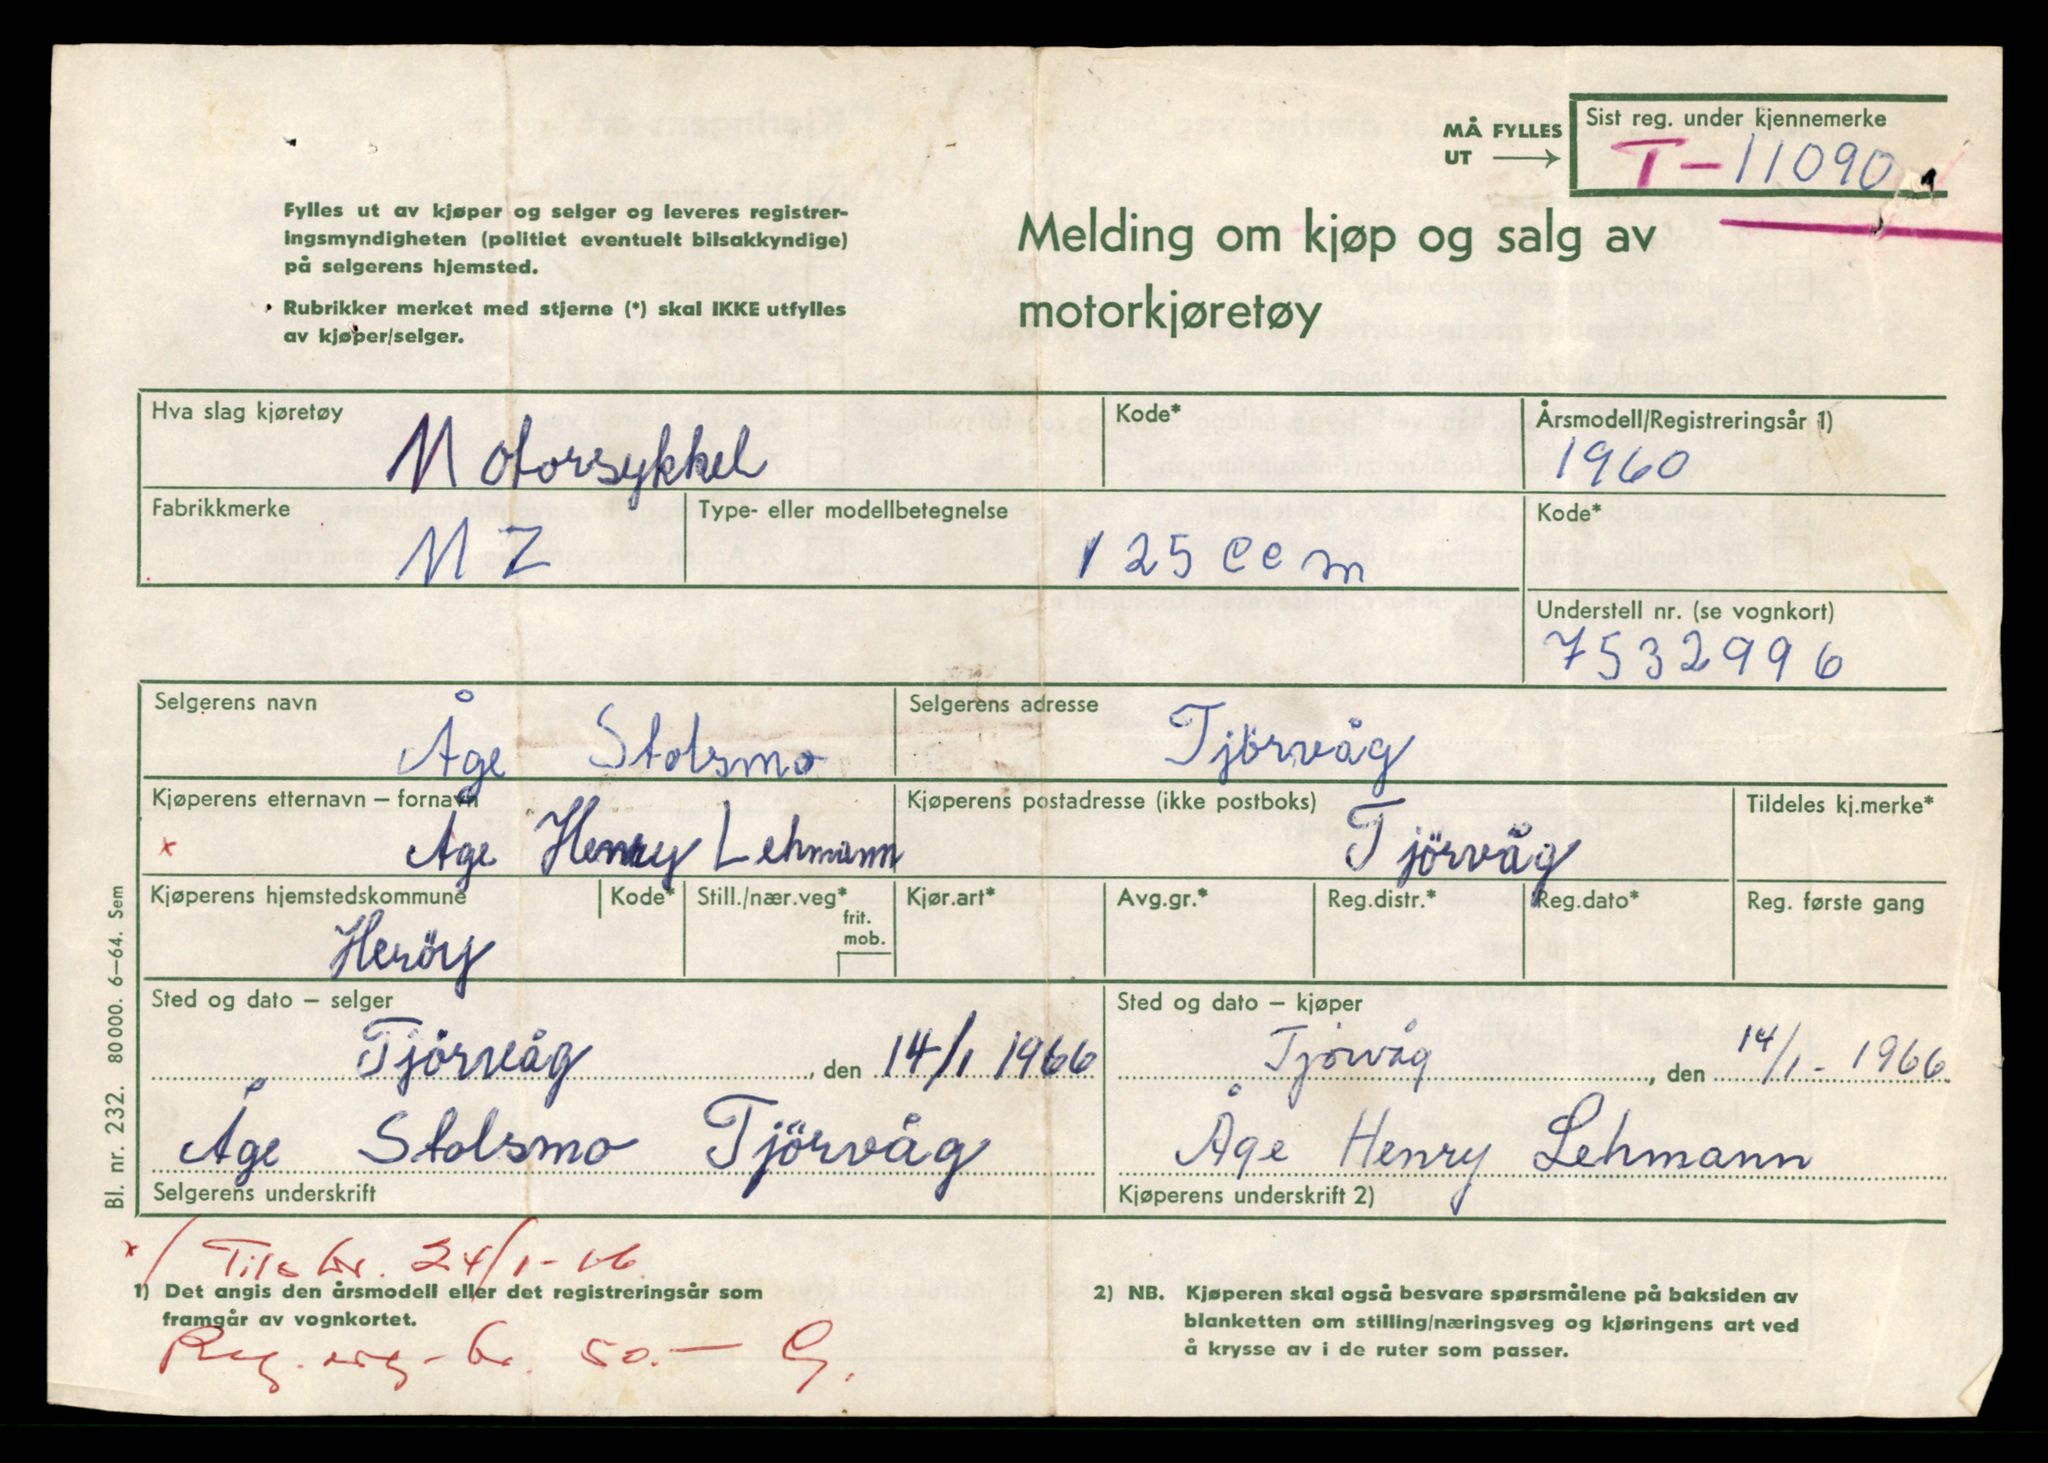 MÅ FYLLES
UT →
Sist reg. under kjennemerke
T-11090
Fylles ut av kjøper og selger og leveres registrer-
ingsmyndigheten (politiet eventuelt bilsakkyndige)
på selgerens hjemsted.
Rubrikker merket med stjerne (*) skal IKKE utfylles
av kjøper/selger.
Melding om kjøp og salg av
motorkjøretøy
Hva slag kjøretøy
Motorsykkel
Kode*
Årsmodell/Registreringsår 1)
1960
Fabrikkmerke
MZ
Type- eller modellbetegnelse
125 ccm
Kode*
Understell nr. (se vognkort)
7532996
Selgerens navn
Åge Stolsmo
Selgerens adresse
Tjörvåg
Kjøperens etternavn – fornavn
x Åge Henry Lehmann
Kjøperens postadresse (ikke postboks)
Tjörvåg
Tildeles kj.merke*
Kjøperens hjemstedskommune
Heröy
Kode*
Still./nær.veg*
frit.
mob.
Kjør.art*
Avg.gr.*
Reg.distr.*
Reg.dato*
Reg. første gang
Sted og dato – selger
Tjörvåg, den 14/1 1966
Åge Stolsmo Tjörvåg
Selgerens underskrift
Sted og dato – kjøper
Tjörvåg, den 14/1- 1966
Åge Henry Lehmann
Kjøperens underskrift 2)
Bl. nr. 232. 80000. 6–64. Sem
x/ 24/1-66
1) Det angis den årsmodell eller det registreringsår som
framgår av vognkortet.
Reg. avg. kr. 50.–
2) NB. Kjøperen skal også besvare spørsmålene på baksiden av
blanketten om stilling/næringsveg og kjøringens art ved
å krysse av i de ruter som passer.